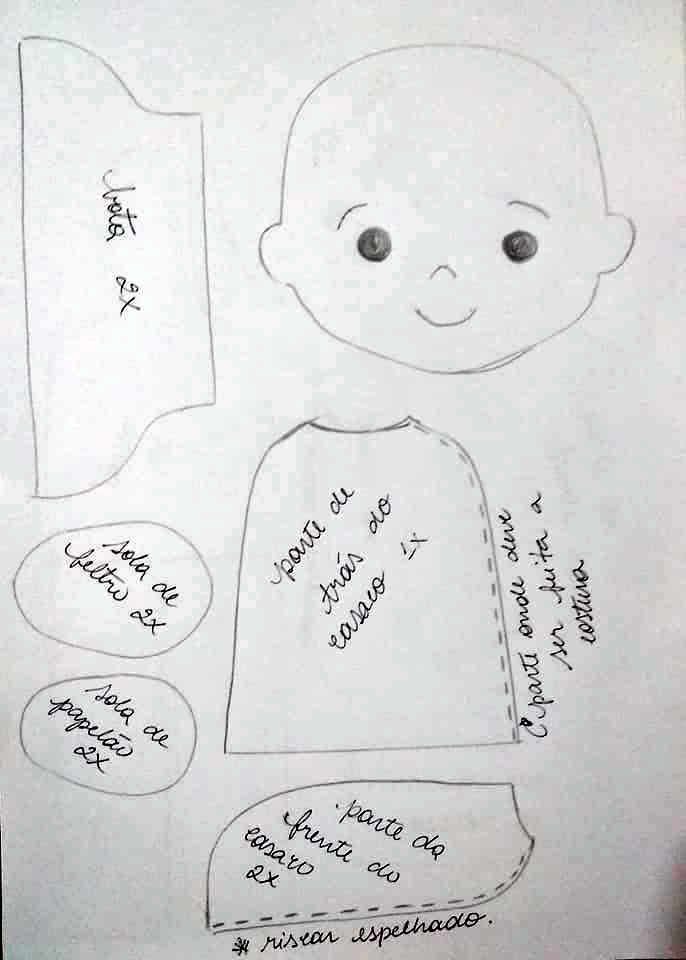 bota 2x
parte de
trás do
casaco 1x
parte onde deve
ser feita a
costura
sola de
feltro 2x
sola de
papelão
2x
parte da
frente do
casaco
2x
* riscar espelhado.